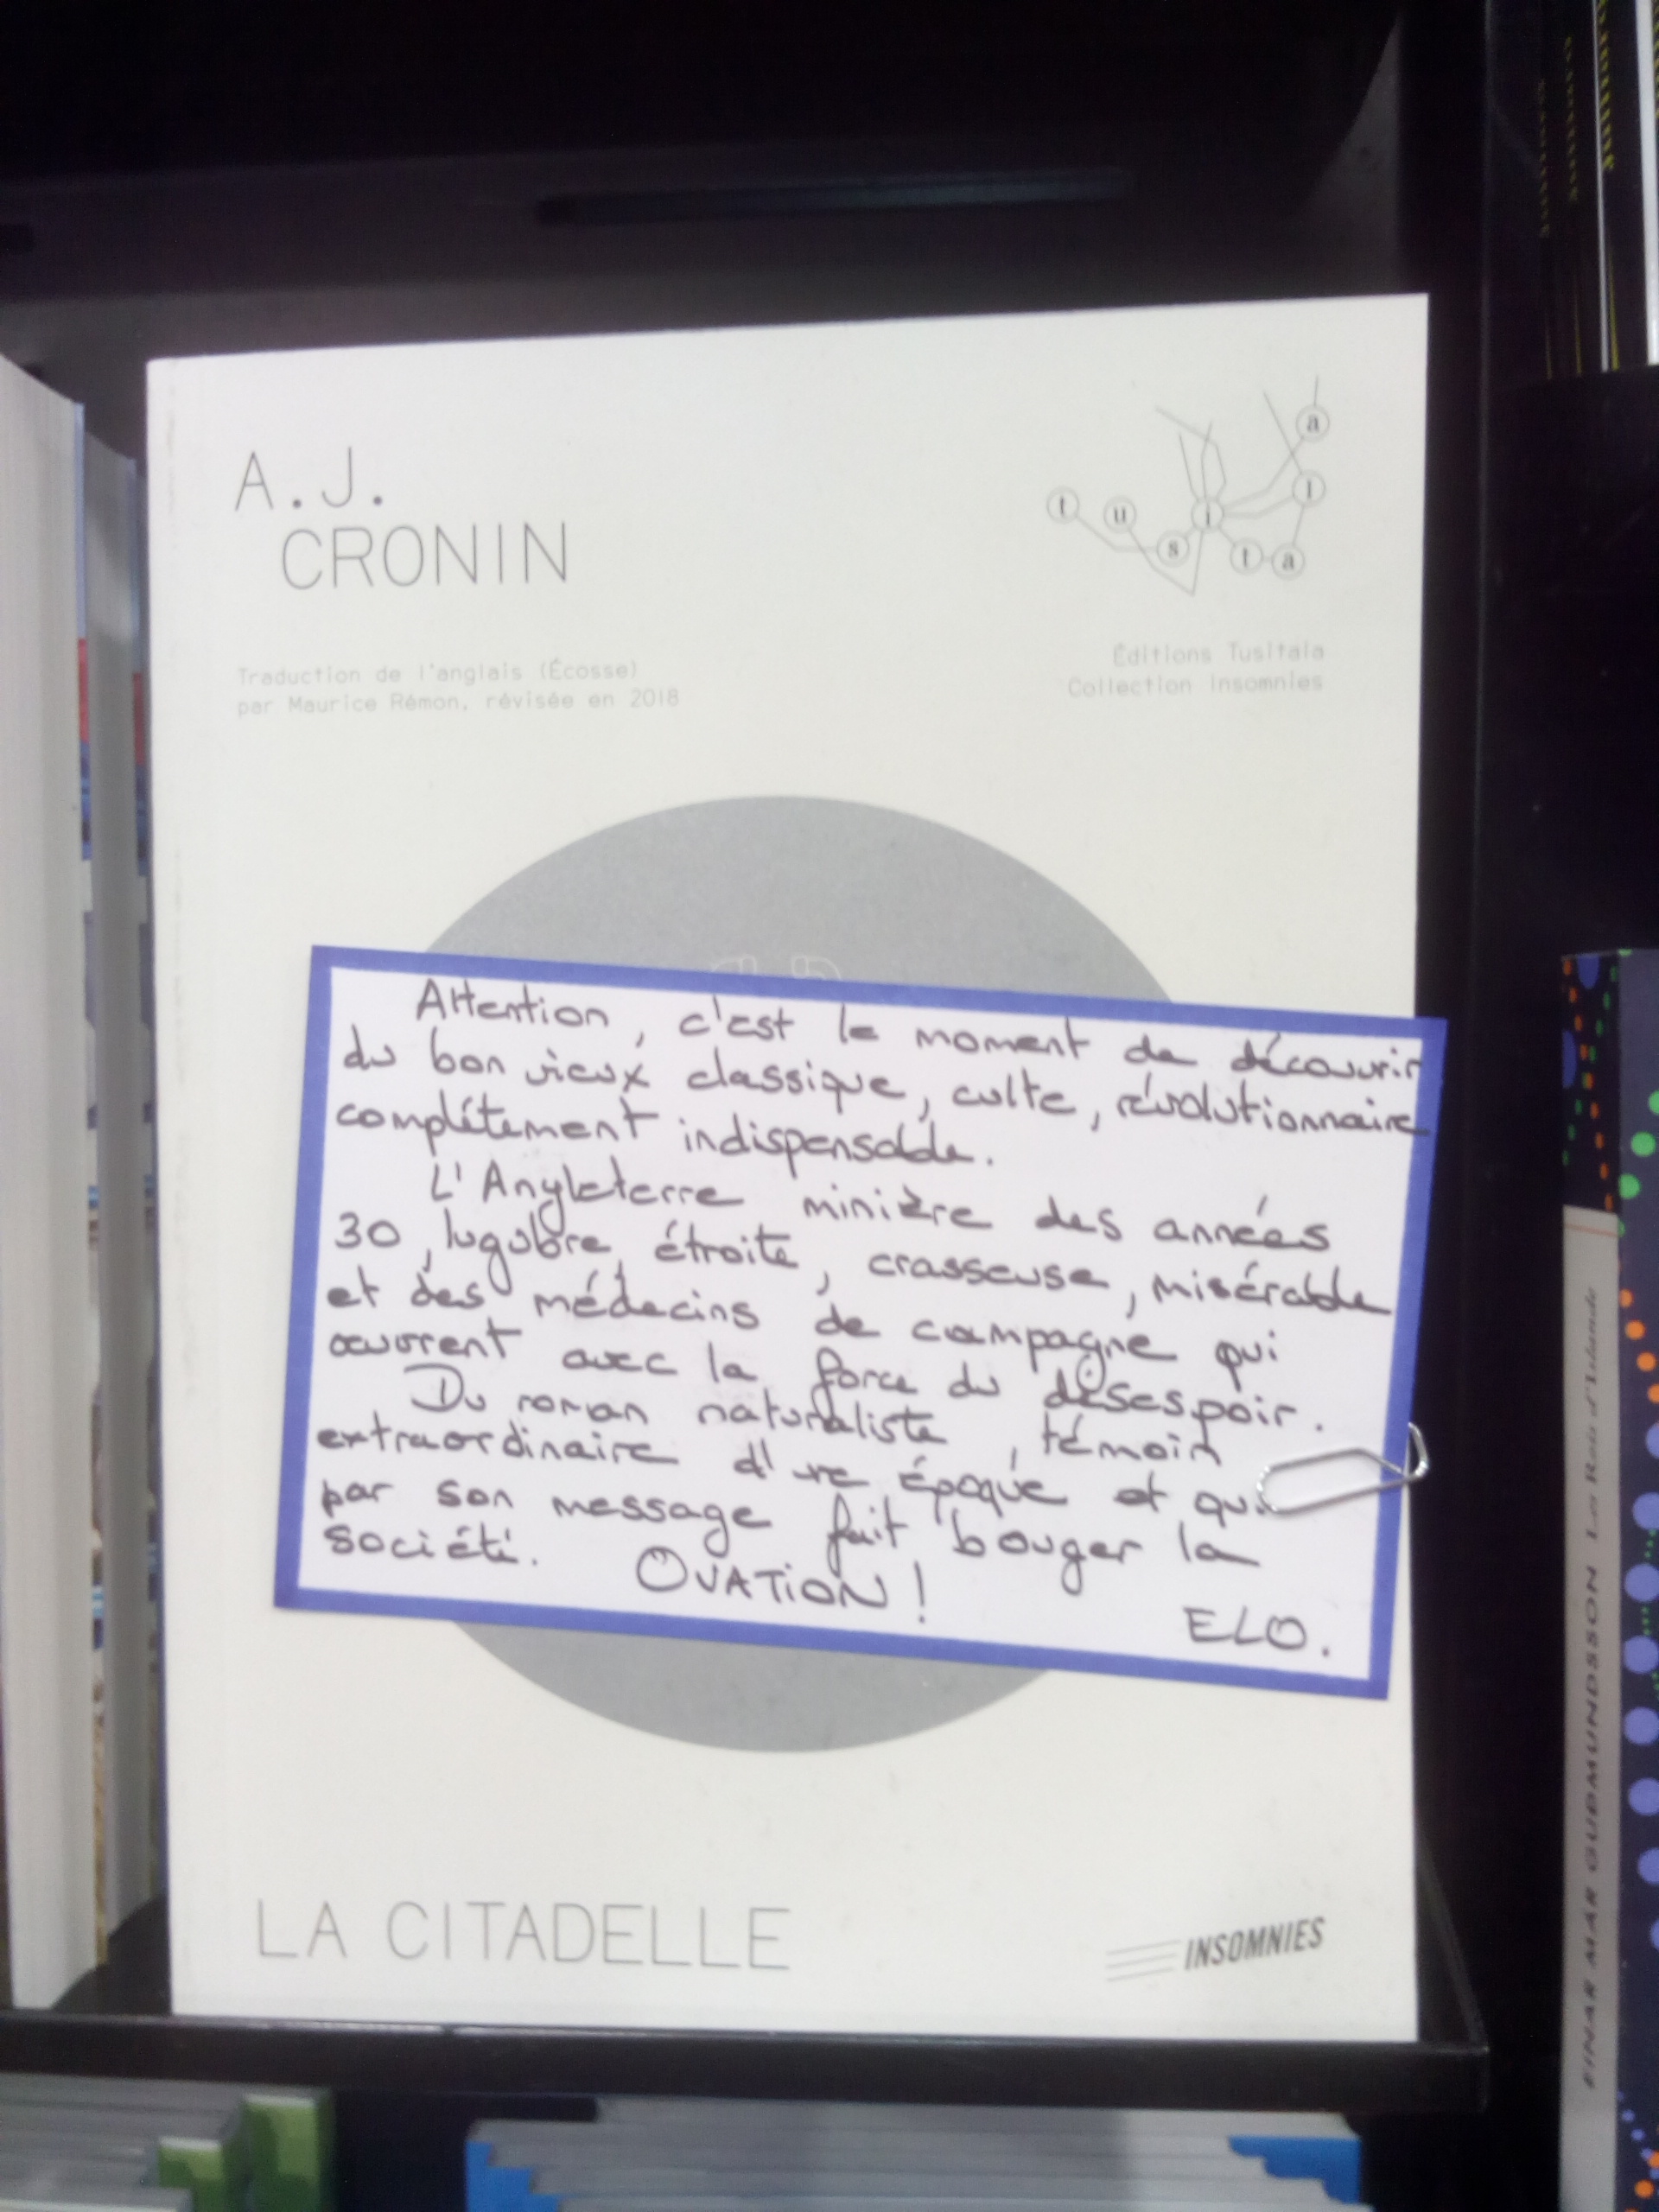 A.J.
CRONIN
tusitala
Traduction de l'anglais (Écosse)
par Maurice Rémon, révisée en 2018
Éditions Tusitala
Collection Insomnies
Attention, c'est le moment de découvrir
du bon vieux classique, culte, révolutionnaire
complétement indispensable.
L'Angleterre minière des années
30, lugubre, étroite, crasseuse, misérable
et des médecins de campagne qui
œuvrent avec la force du désespoir.
Du roman naturaliste, témoin
extraordinaire d'une époque et qui
par son message fait bouger la
société. OVATION !
ELO.
LA CITADELLE
INSOMNIES
EINAR MAR GUDMUNDSSON Les Rois d'Islande